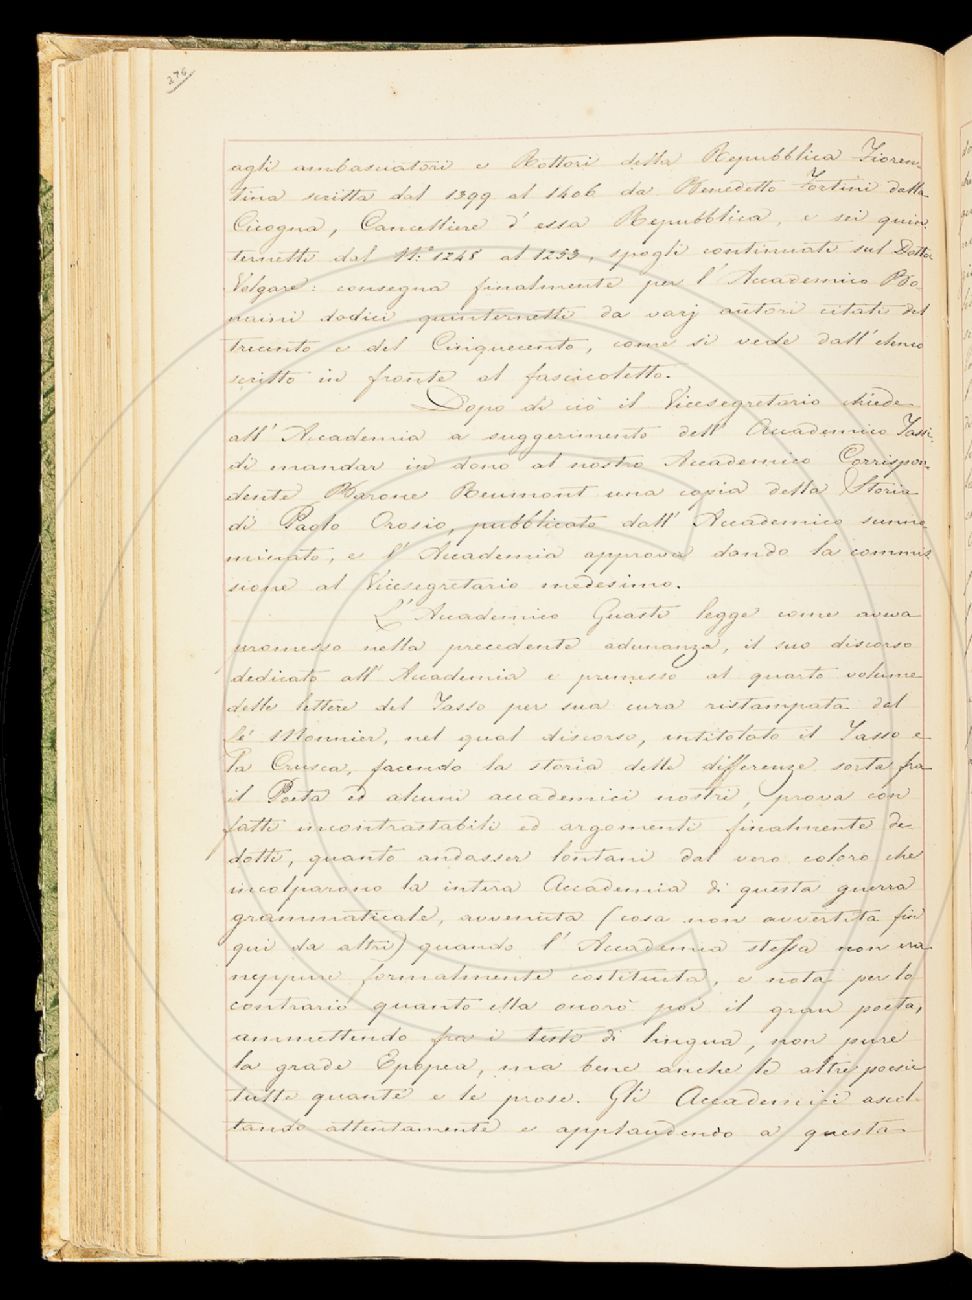 276
agli ambasciatori e Rettori della Repubblica Fioren-
tina scritta dal 1399 al 1406 da Benedetto Fortini dalla
Cicogna, Cancelliere d'essa Repubblica, e sei quin
ternetti dal N.° 1248 al 1253, spogli continuati sul Dottor
Volgare: consegna finalmente per l'Accademico Bo
naini dodici quinternetti da varj autori citati del
trecento e del Cinquecento, come si vede dall'elenco
scritto in fronte al fascicoletto.
Dopo di ciò il Vicesegretario chiede
all'Accademia a suggerimento dell'Accademico Tassi
di mandar in dono al nostro Accademico Corrispon-
dente Barone Reumont una copia della Storia
di Paolo Orosio, pubblicato dall'Accademico sunno
minato, e l'Accademia approva dando la commis
sione al Vicesegretario medesimo.
L'Accademico Guasti legge come aveva
promesso nella precedente adunanza, il suo discorso
dedicato all'Accademia e premesso al quarto volume
delle lettere del Tasso per sua cura ristampata dal
Le Monnier, nel qual discorso, intitolato il Tasso e
la Crusca, facendo la storia delle differenze sorte fra
il Poeta ed alcuni accademici nostri, prova con
fatti incontrastabili ed argomenti finalmente de
dotti, quanto andasser lontani dal vero coloro che
incolparono la intera Accademia di questa guerra
grammaticale, avvenuta (cosa non avvertita fin
qui da altri) quando l'Accademia stessa non era
neppure formalmente costituita, e nota per lo
contrario quanto ella onorò poi il gran poeta,
ammettendo fra i testi di lingua, non pure
la grade Epopea, ma bene anche le altre poesie
tutte quante e le prose. Gli Accademici ascol-
tando attentamente e applaudendo a questa